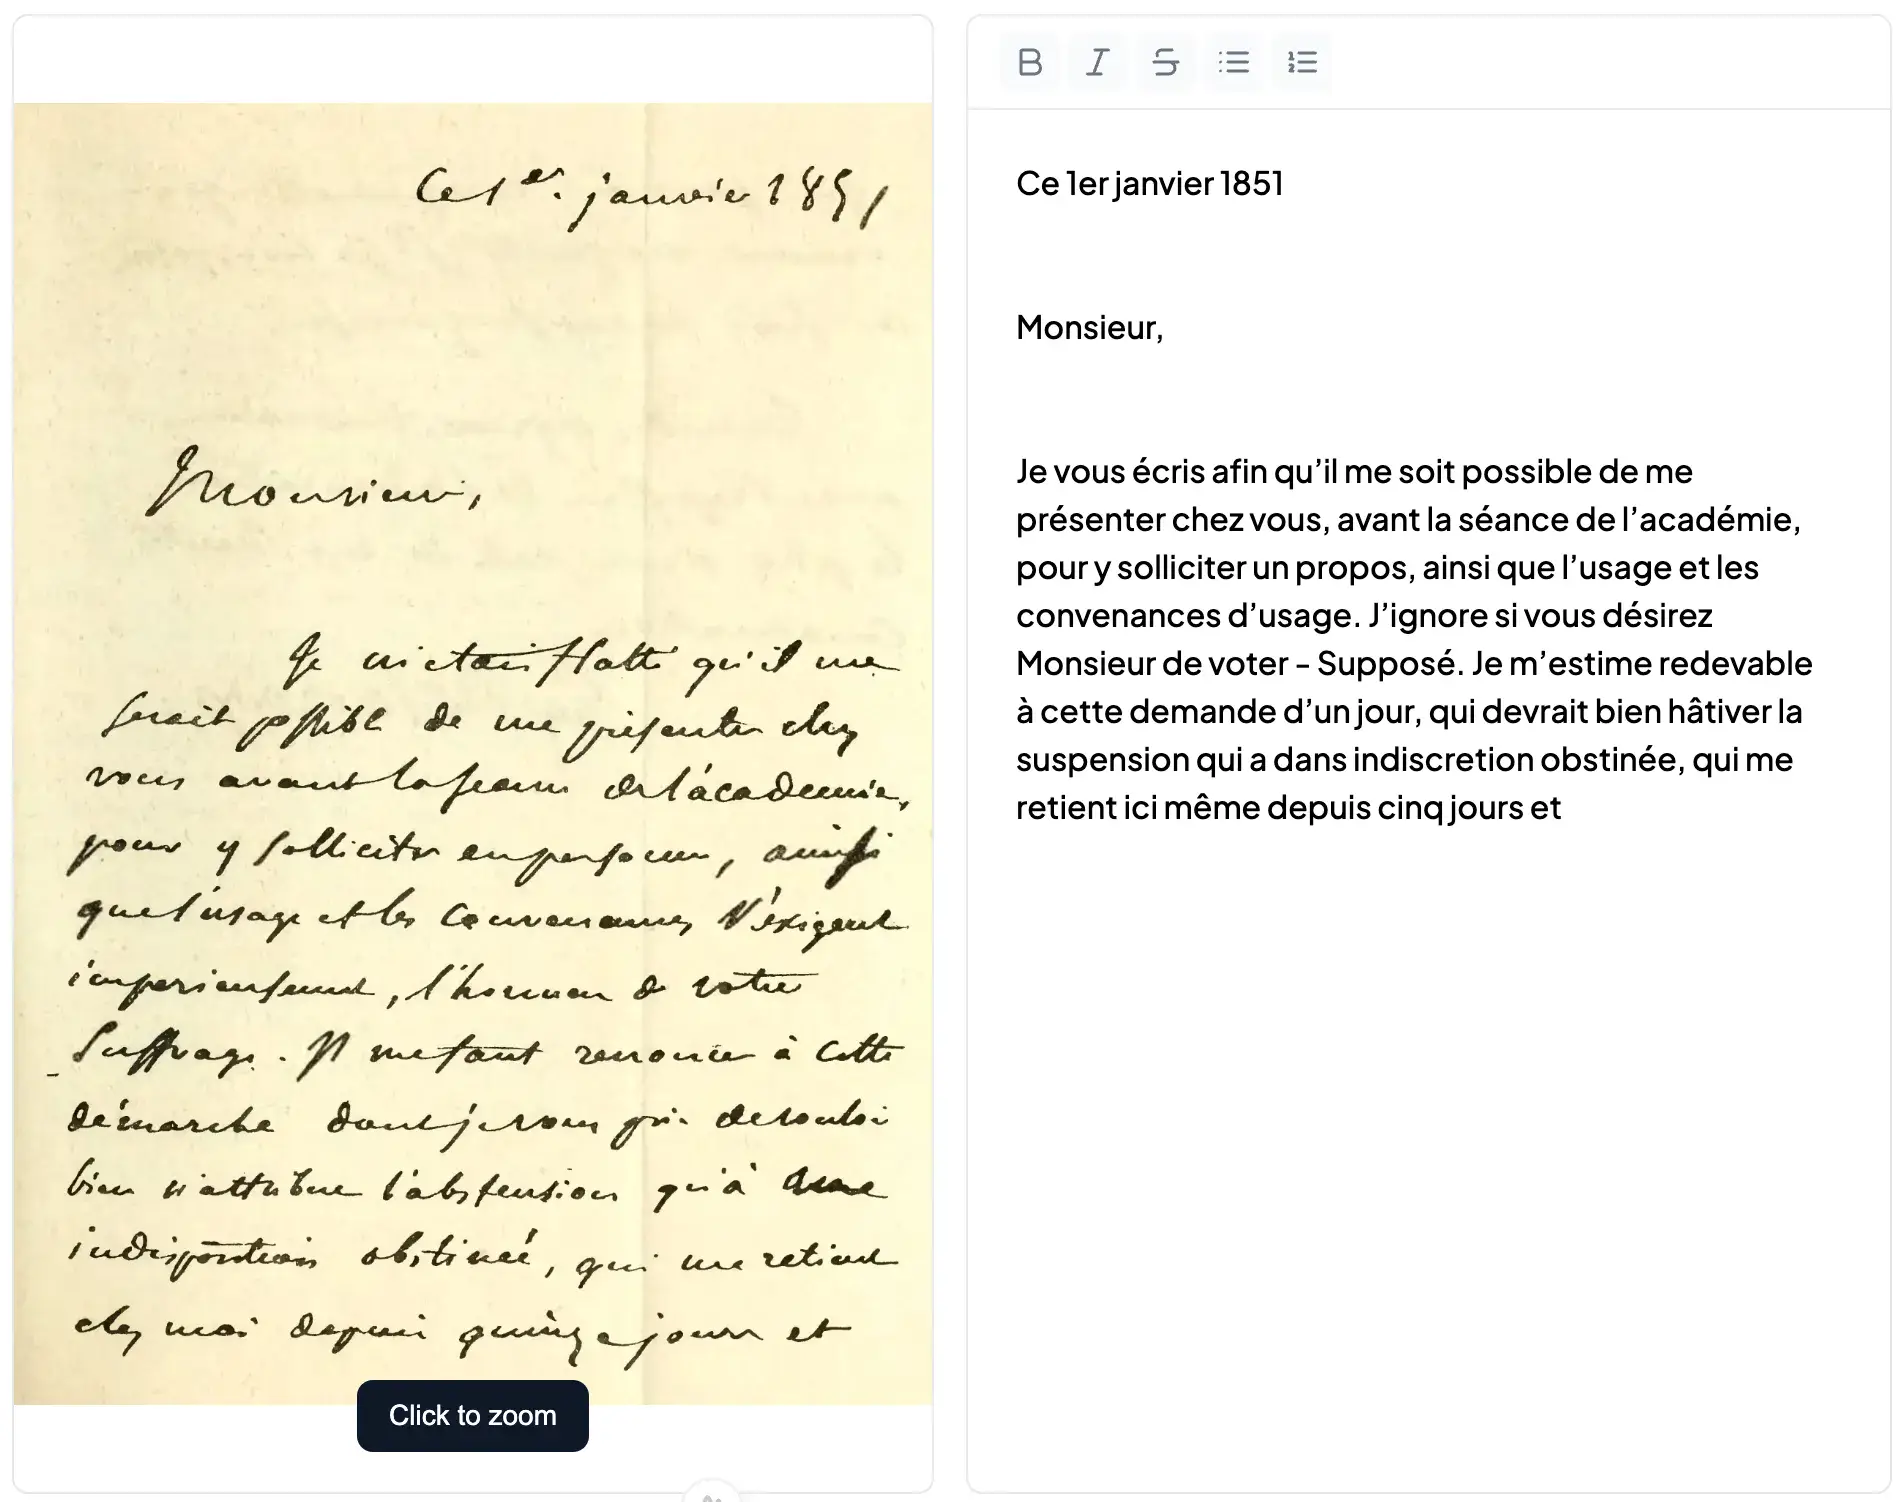 Ce 1er. janvier 1851
Monsieur,
Je m'etais flatté qu'il me
serait possible de me présenter chez
vous avant la séance de l'académie,
pour y solliciter en personne, ainsi
que l'usage et les convenances l'exigent
impérieusement, l'honneur de votre
suffrage. Il me faut renoncer à cette
démarche dont je vous prie de vouloir
bien n'attribuer l'abstension qu'à une
indisposition obstinée, qui me retient
chez moi depuis quinze jours et
Click to zoom
B I S
Ce 1er janvier 1851
Monsieur,
Je vous écris afin qu’il me soit possible de me
présenter chez vous, avant la séance de l’académie,
pour y solliciter un propos, ainsi que l’usage et les
convenances d’usage. J’ignore si vous désirez
Monsieur de voter – Supposé. Je m’estime redevable
à cette demande d’un jour, qui devrait bien hâtiver la
suspension qui a dans indiscretion obstinée, qui me
retient ici même depuis cinq jours et